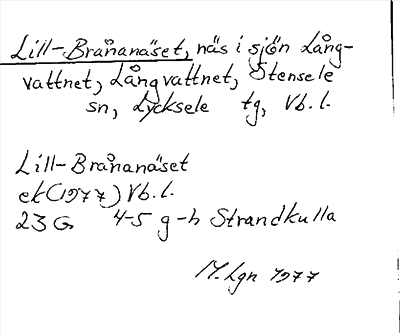 Lill-Brånanäset, näs i sjön Lång-
vattnet, Långvattnet, Stensele
sn, Lycksele tg, Vb. l.
Lill-Brånanäset
ek (1977) Vb. l.
23 G 4-5 g-h Strandkulla
M. Lgn 1977